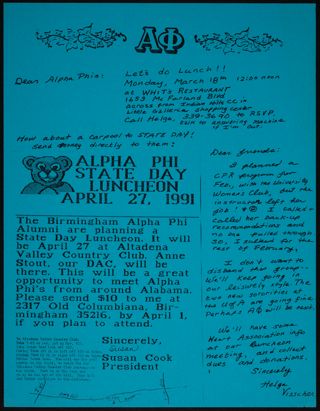 ΑΦ
Dear Alpha Phis:
Let's do Lunch!!
Monday, March 18th 12:00 noon
at WHIT'S RESTAURANT
1653 McFarland Blvd
across from Indian Hills CC in
Little Galleria Shopping Center
Call Helga, 339-3690 to RSVP,
talk to answering machine
if I'm out.
How about a carpool to STATE DAY!
Send money directly to them:
ALPHA PHI
STATE DAY
LUNCHEON
APRIL 27, 1991
The Birmingham Alpha Phi
Alumni are planning a
State Day Luncheon. It will
be April 27 at Altadena
Valley Country Club. Anne
Stout, our DAC, will be
there. This will be a great
opportunity to meet Alpha
Phi's from around Alabama.
Please send $10 to me at
2317 Old Columbiana, Bir-
mingham 35216, by April 1,
if you plan to attend.
Sincerely,
Susan
Susan Cook
President
Dear friends:
I planned a
CPR program for
Feb. with the University
Women's Club, but the
instructor left her
job! I called
called her back-up
recommendations and
no one called through
so, I sulked for the
rest of February.
I don't want to
disband the group-
We'll keep going in
our leisurely style. The
two new sororities at
the U of A are going fine
Perhaps ΑΦ will be next.
We'll have some
Heart Association info
at our luncheon
meeting, and collect
dues and donations.
Sincerely
Helga
Visscher